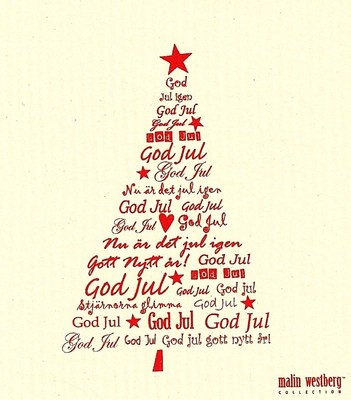 God
Jul igen
God Jul
God Jul
God Jul
God Jul
God, Jul
Nu är det jul igen
God Jul God Jul
God, Jul God Jul
Nu är det jul igen
Gott Nytt år! God Jul
God Jul God Jul God jul
Stjärnorna glimma God jul
God Jul God Jul God Jul
God, Jul God Jul God jul gott nytt år!
malin westberg™
COLLECTION